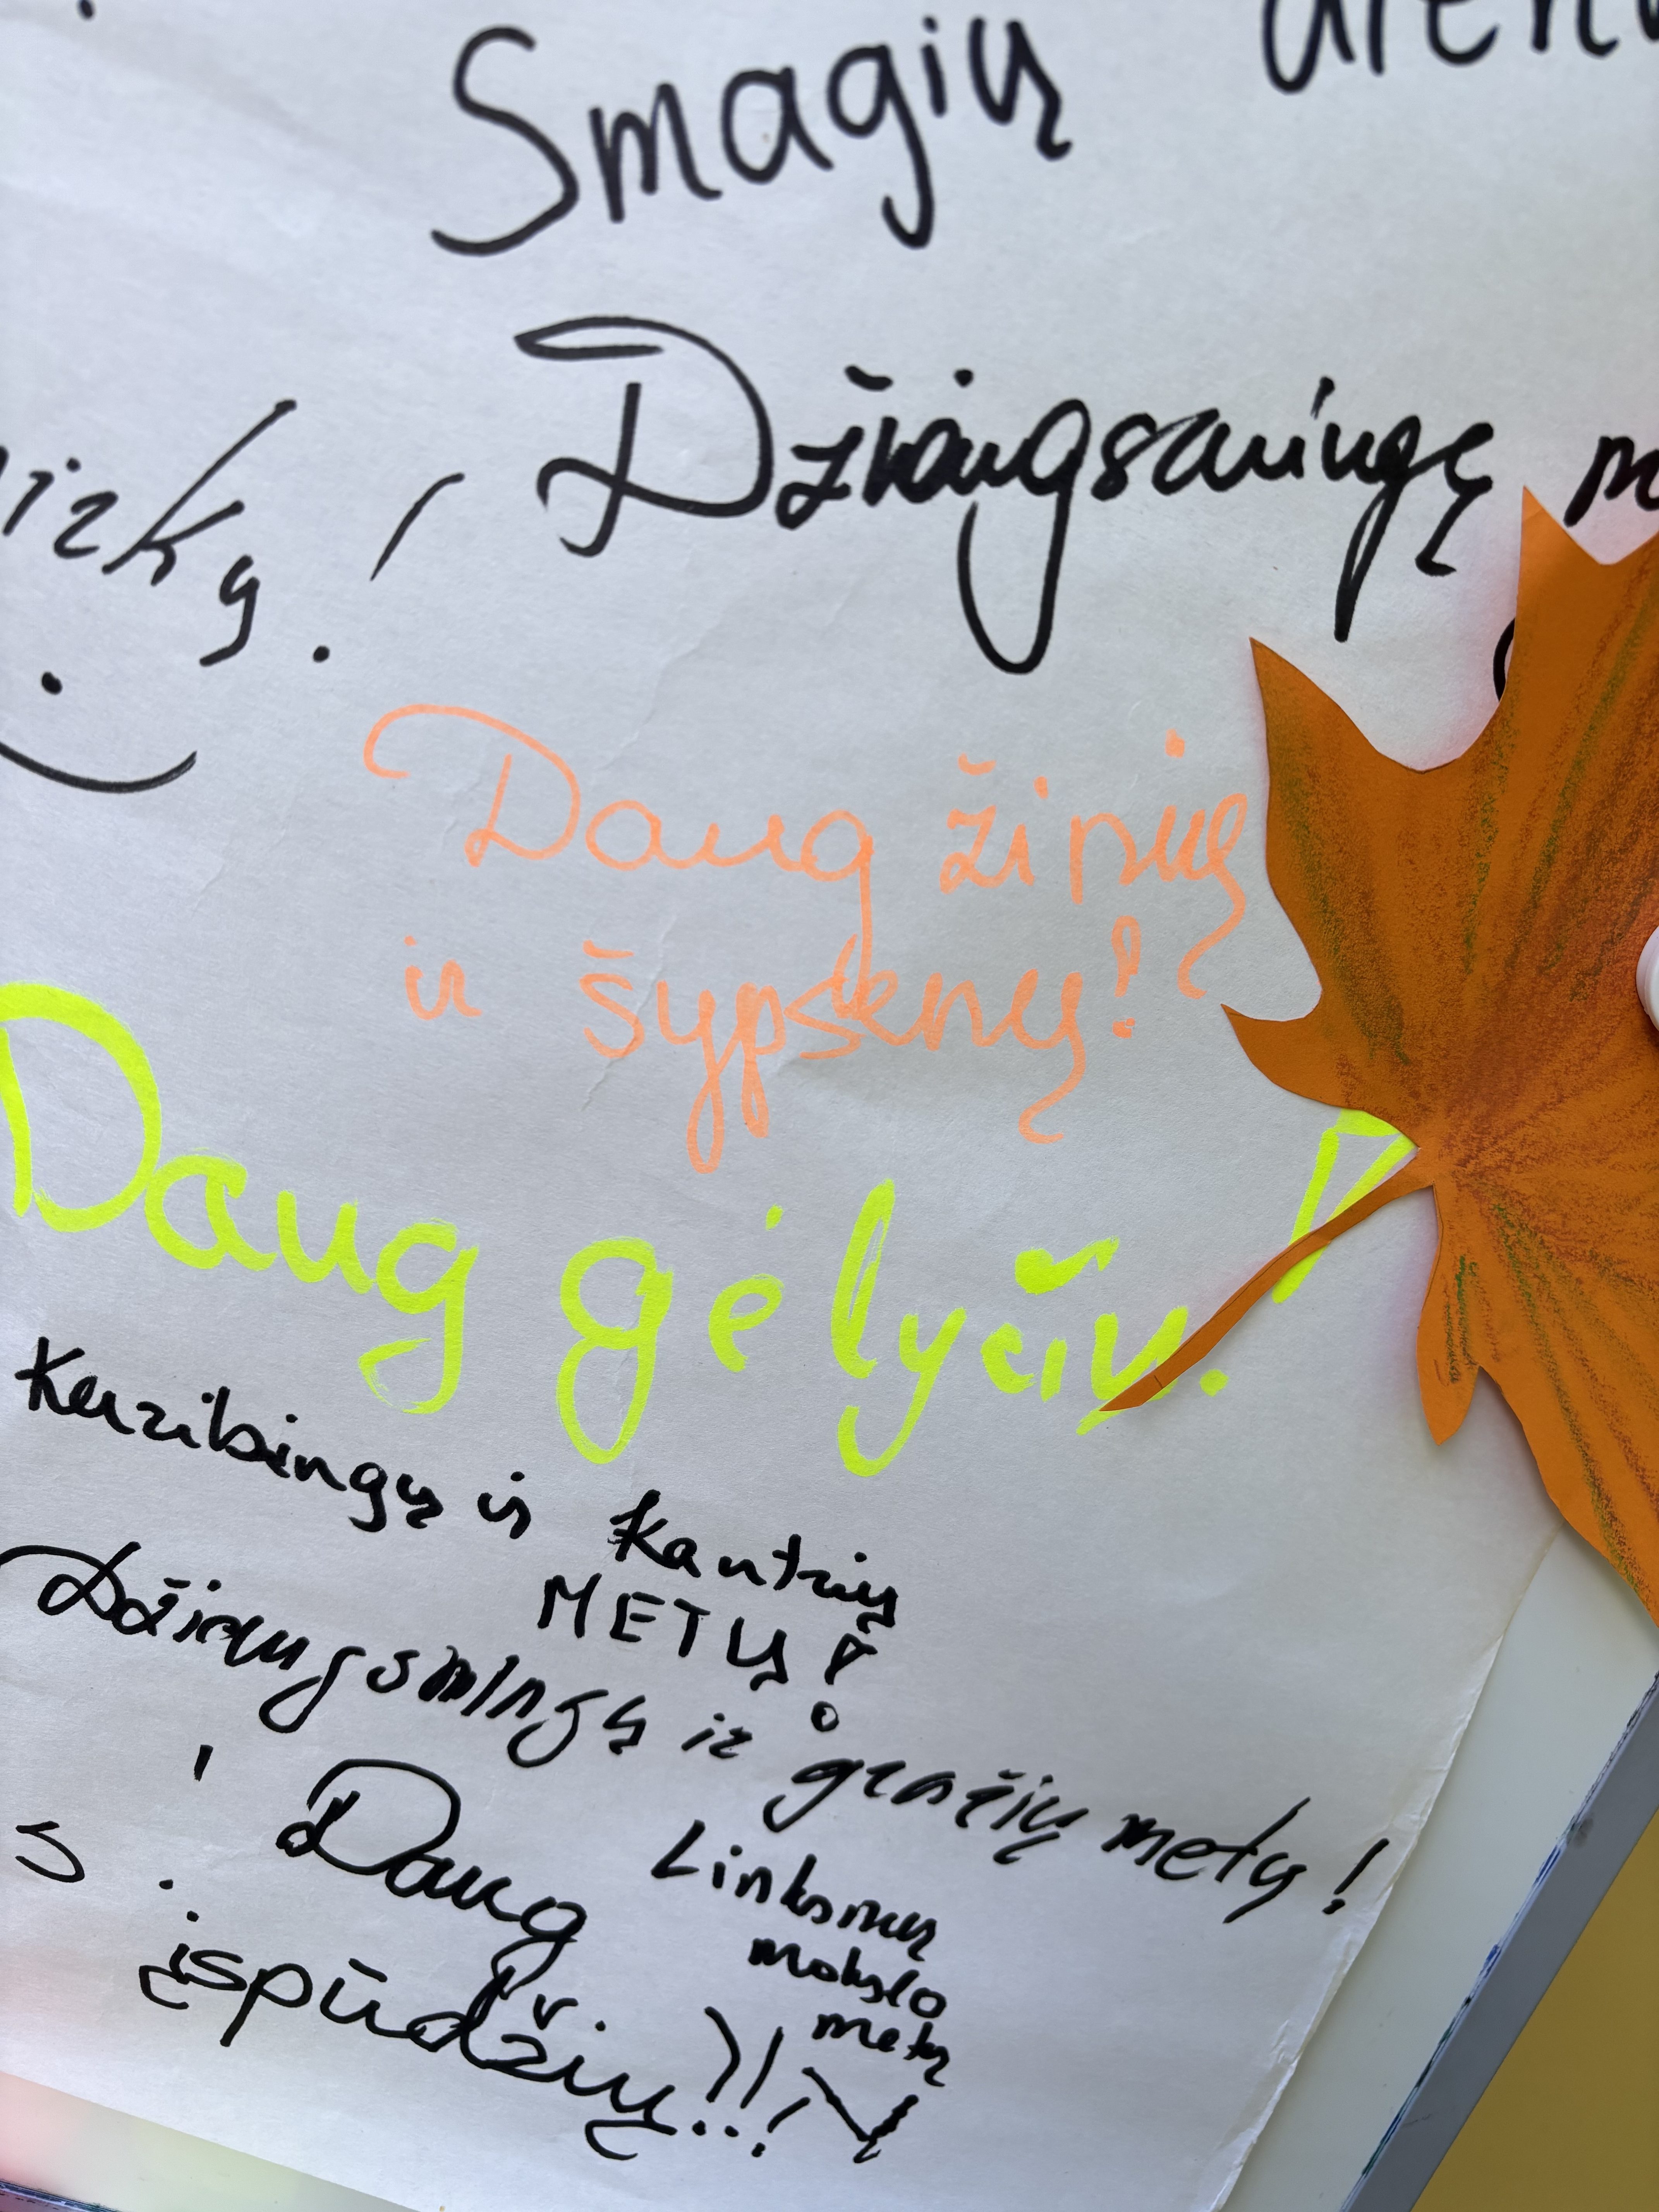 Smagių dienų
Džiaugsmingų
Daug žinių
ir šypsenų!
Daug gėlyčių!
Kūrybingų ir kantrių
METŲ!
Džiaugsmingų ir gražių metų!
Daug
įspūdžių!!!
Linksmų
mokslo
metų